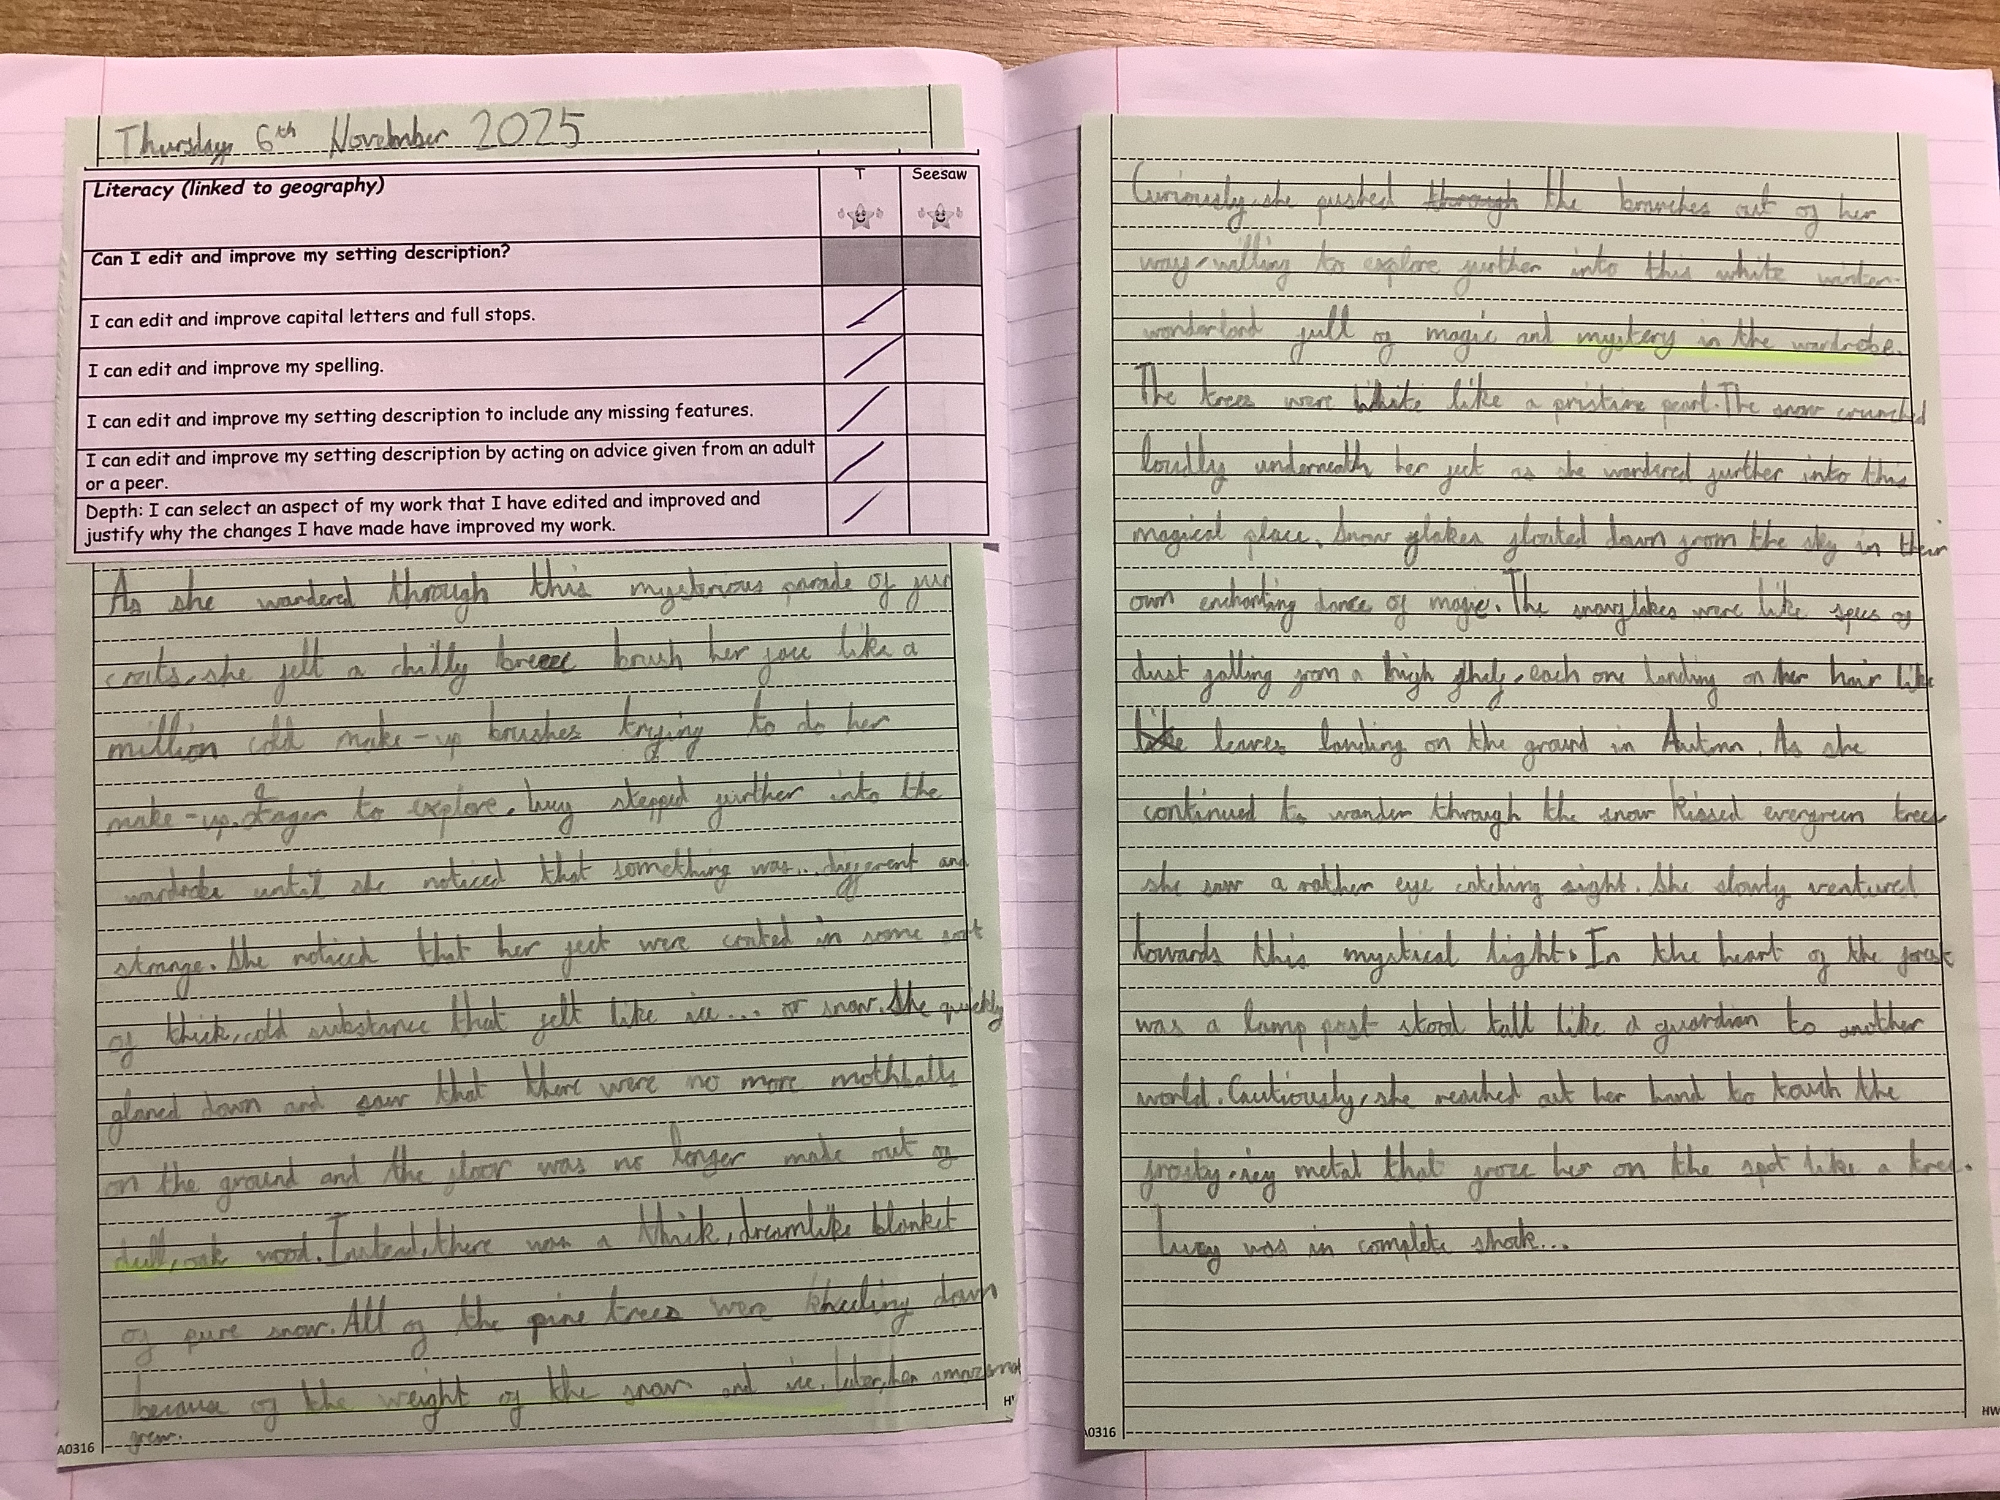 Thursday 6th November 2025
Literacy (linked to geography)
T
Seesaw
Can I edit and improve my setting description?
I can edit and improve capital letters and full stops.
I can edit and improve my spelling.
I can edit and improve my setting description to include any missing features.
I can edit and improve my setting description by acting on advice given from an adult
or a peer.
Depth: I can select an aspect of my work that I have edited and improved and
justify why the changes I have made have improved my work.
As she wandered through this mysterious parade of fur
coats, she felt a chilly breeze brush her face like a
million cold make-up brushes trying to do her
make-up. Eager to explore, Lucy stepped further into the
wardrobe until she noticed that something was... different and
strange. She noticed that her feet were coated in some sort
of thick, cold substance that felt like ice... or snow. She quickly
glaned down and saw that there were no more mothballs
on the ground and the floor was no longer made out of
dull, oak wood. Instead, there was a thick, dreamlike blanket
of pure snow. All of the pine trees were kneeling down
because of the weight of the snow and ice. Later, her
grew.
A0316
Curiously, she pushed through the branches out of her
way, willing to explore further into this white winter-
wonderland full of magic and mystery in the wardrobe.
The trees were white like a pristine pearl. The snow crunched
loudly underneath her feet as she wandered further into this
magical place. Snow flakes floated down from the sky in their
own enchanting dance of magic. The snowflakes were like specs of
dust falling from a high shelf, each one landing on her hair like
like leaves landing on the ground in Autmn. As she
continued to wander through the snow kissed evergreen trees
she saw a rather eye catching sight. She slowly ventured
towards this mystical light. In the heart of the forest
was a lamp post stood tall like a guardian to another
world. Cautiously, she reached out her hand to touch the
frosty, icy metal that froze her on the spot like a tree.
Lucy was in complete shock...
A0316
HW